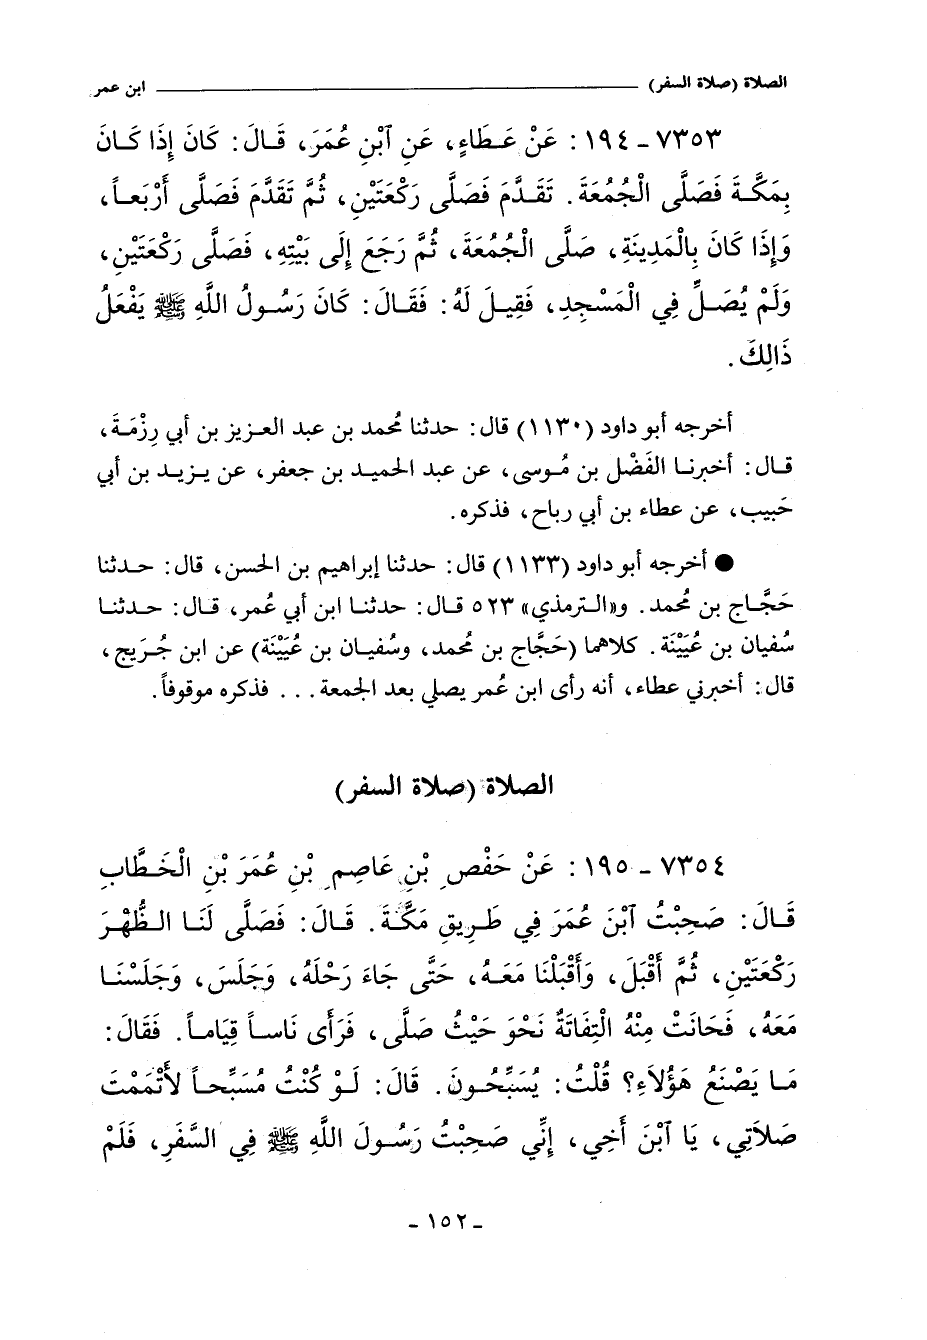 الصلاة (صلاة السفر) ابن عمر
٧٣٥٣ - ١٩٤ : عَنْ عَطَاءٍ، عَنِ آبْنِ عُمَرَ، قَالَ: كَانَ إِذَا كَانَ
بِمَكَّةَ فَصَلَّى الْجُمُعَةَ. تَقَدَّمَ فَصَلَّى رَكْعَتَيْنِ، ثُمَّ تَقَدَّمَ فَصَلَّى أَرْبَعاً،
وَإِذَا كَانَ بِالْمَدِينَةِ، صَلَّى الْجُمُعَةَ، ثُمَّ رَجَعَ إِلَى بَيْتِهِ، فَصَلَّى رَكْعَتَيْنِ،
وَلَمْ يُصَلِّ فِي الْمَسْجِدِ، فَقِيلَ لَهُ: فَقَالَ: كَانَ رَسُولُ اللَّهِ ﷺ يَفْعَلُ
ذَالِكَ.
أخرجه أبو داود (١١٣٠) قال: حدثنا محُمد بن عبد العزيز بن أبي رِزْمَةَ،
قال: أخبرنا الفَضْل بن مُوسى، عن عبد الحميد بن جعفر، عن يزيد بن أبي
حَبيب، عن عطاء بن أبي رباح، فذكره.
● أخرجه أبو داود (١١٣٣) قال: حدثنا إبراهيم بن الحسن، قال: حدثنا
حَجَّاج بن مُحمد. و«الترمذي» ٥٢٣ قال: حدثنا ابن أبي عُمر، قال: حدثنا
سُفيان بن عُيَيْنَة. كلاهما (حَجَّاج بن مُحمد، وسُفيان بن عُيَيْنَة) عن ابن جُرَيج،
قال: أخبرني عطاء، أنه رأى ابن عُمر يصلي بعد الجمعة... فذكره موقوفاً.
الصلاة (صلاة السفر)
٧٣٥٤ - ١٩٥ : عَنْ حَفْصِ بْنِ عَاصِمِ بْنِ عُمَرَ بْنِ الْخَطَّابِ
قَالَ: صَحِبْتُ آبْنَ عُمَرَ فِي طَرِيقِ مَكَّةَ. قَالَ: فَصَلَّى لَنَا الظُّهْرَ
رَكْعَتَيْنِ، ثُمَّ أَقْبَلَ، وَأَقْبَلْنَا مَعَهُ، حَتَّى جَاءَ رَحْلَهُ، وَجَلَسَ، وَجَلَسْنَا
مَعَهُ، فَحَانَتْ مِنْهُ الْتِفَاتَةٌ نَحْوَ حَيْثُ صَلَّى، فَرَأَى نَاساً قِيَاماً. فَقَالَ:
مَا يَصْنَعُ هَؤُلَاءِ؟ قُلْتُ: يُسَبِّحُونَ. قَالَ: لَوْ كُنْتُ مُسَبِّحاً لأَتْمَمْتُ
صَلَاتِي، يَا آبْنَ أَخِي، إِنِّي صَحِبْتُ رَسُولَ اللَّهِ ﷺ فِي السَّفَرِ، فَلَمْ
- ١٥٢ -